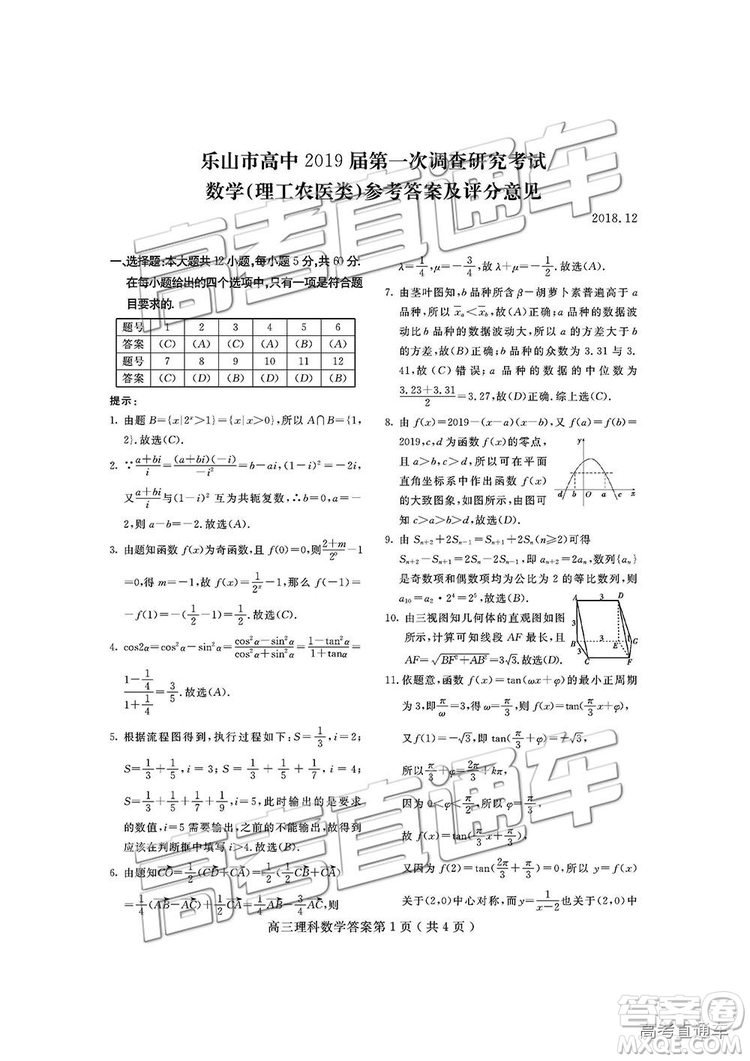 乐山市高中 2019 届第一次调查研究考试
数学(理工农医类)参考答案及评分意见
2018.12
一、选择题:本大题共 12 小题,每小题 5 分,共 60 分.
在每小题给出的四个选项中,只有一项是符合题
目要求的.
题号 1 2 3 4 5 6
答案 (C) (A) (C) (A) (B) (A)
题号 7 8 9 10 11 12
答案 (C) (D) (B) (D) (D) (B)
提示:
1. 由题 B={x|2ˣ>1}={x|x>0},所以 A∩B={1,
2}.故选(C).
2. ∵(a+bi)/i=(a+bi)(-i)/(-i²)=b-ai,(1-i)²=-2i,
又(a+bi)/i与(1-i)²互为共轭复数,∴b=0,a=-
2,则 a-b=-2.故选(A).
3. 由题知函数 f(x)为奇函数,且 f(0)=0,则(2+m)/2⁰-1
=0,得 m=-1,故 f(x)=1/2ˣ-1,那么 f(-1)=
-f(1)=-(1/2-1)=1/2.故选(C).
4. cos2α=cos²α-sin²α=(cos²α-sin²α)/(cos²α+sin²α)=(1-tan²α)/(1+tan²α)=
(1-1/4)/(1+1/4)=3/5.故选(A).
5. 根据流程图得到,执行过程如下:S=1/3,i=2;
S=1/3+1/5,i=3;S=1/3+1/5+1/7,i=4;
S=1/3+1/5+1/7+1/9,i=5,此时输出的是要求
的数值,i=5 需要输出,之前的不能输出,故得到
应该在判断框中填写 i>4.故选(B).
6. 由题知CO=1/2CD=1/2(CB+CA)=1/2(1/2CB+CA)=
1/4(AB-AC)+1/2CA=1/4AB-3/4AC,则
λ=1/4,μ=-3/4,所以 λ+μ=-1/2.故选(A).
7. 由茎叶图知,b 品种所含 β-胡萝卜素普遍高于 a
品种,所以 x̄ₐ<x̄_b,故(A)正确;a 品种的数据波
动大比 b 品种的数据波动大,所以 a 的方差大于
b 的方差,故(B)正确;b 品种的众数为 3.31 与 3.
41,故(C)错误;a 品种的数据的中位数为
(3.23+3.31)/2=3.27,故(D)正确.综上选(C).
8. 由 f(x)=2019-(x-a)(x-b),又 f(a)=f(b)=
2019,c,d 为函数 f(x)的零点,
且 a>b,c>d,所以可在平面
直角坐标系中作出函数 f(x)
的大致图象,如图所示,由图可知
c>a>b>d,故选(D).
9. 由 Sₙ₊₂+2Sₙ₋₁=Sₙ₊₁+2Sₙ(n≥2)可得
Sₙ₊₂-Sₙ₊₁=2(Sₙ-Sₙ₋₁),即 aₙ₊₂=2aₙ,数列{aₙ}
是奇数项和偶数项均为公比为 2 的等比数列,则
a₁₀=a₂·2⁴=2⁵,故选(B).
10. 由三视图知几何体的直观图如图
所示,计算可知线段 AF 最长,且
AF=√(BF²+AB²)=3√3.故选(D).
11. 依题意,函数 f(x)=tan(ωx+φ)的最小正周期
为 3,即π/ω=3,得 ω=π/3,则 f(x)=tan(π/3x+φ),
又 f(1)=-√3,即 tan(π/3+φ)=-√3,
因为 0<φ<π/2,所以 φ=π/3,
故 f(x)=tan(π/3x+π/3),
又因为 f(2)=tan(2π/3+π/3)=0,所以图象
关于(2,0)中心对称,而 y=1/(x-2)也关于(2,0)中
高三理科数学答案第 1 页(共 4 页)
高考直通车
答案圈
MXQE.COM
高考直通车